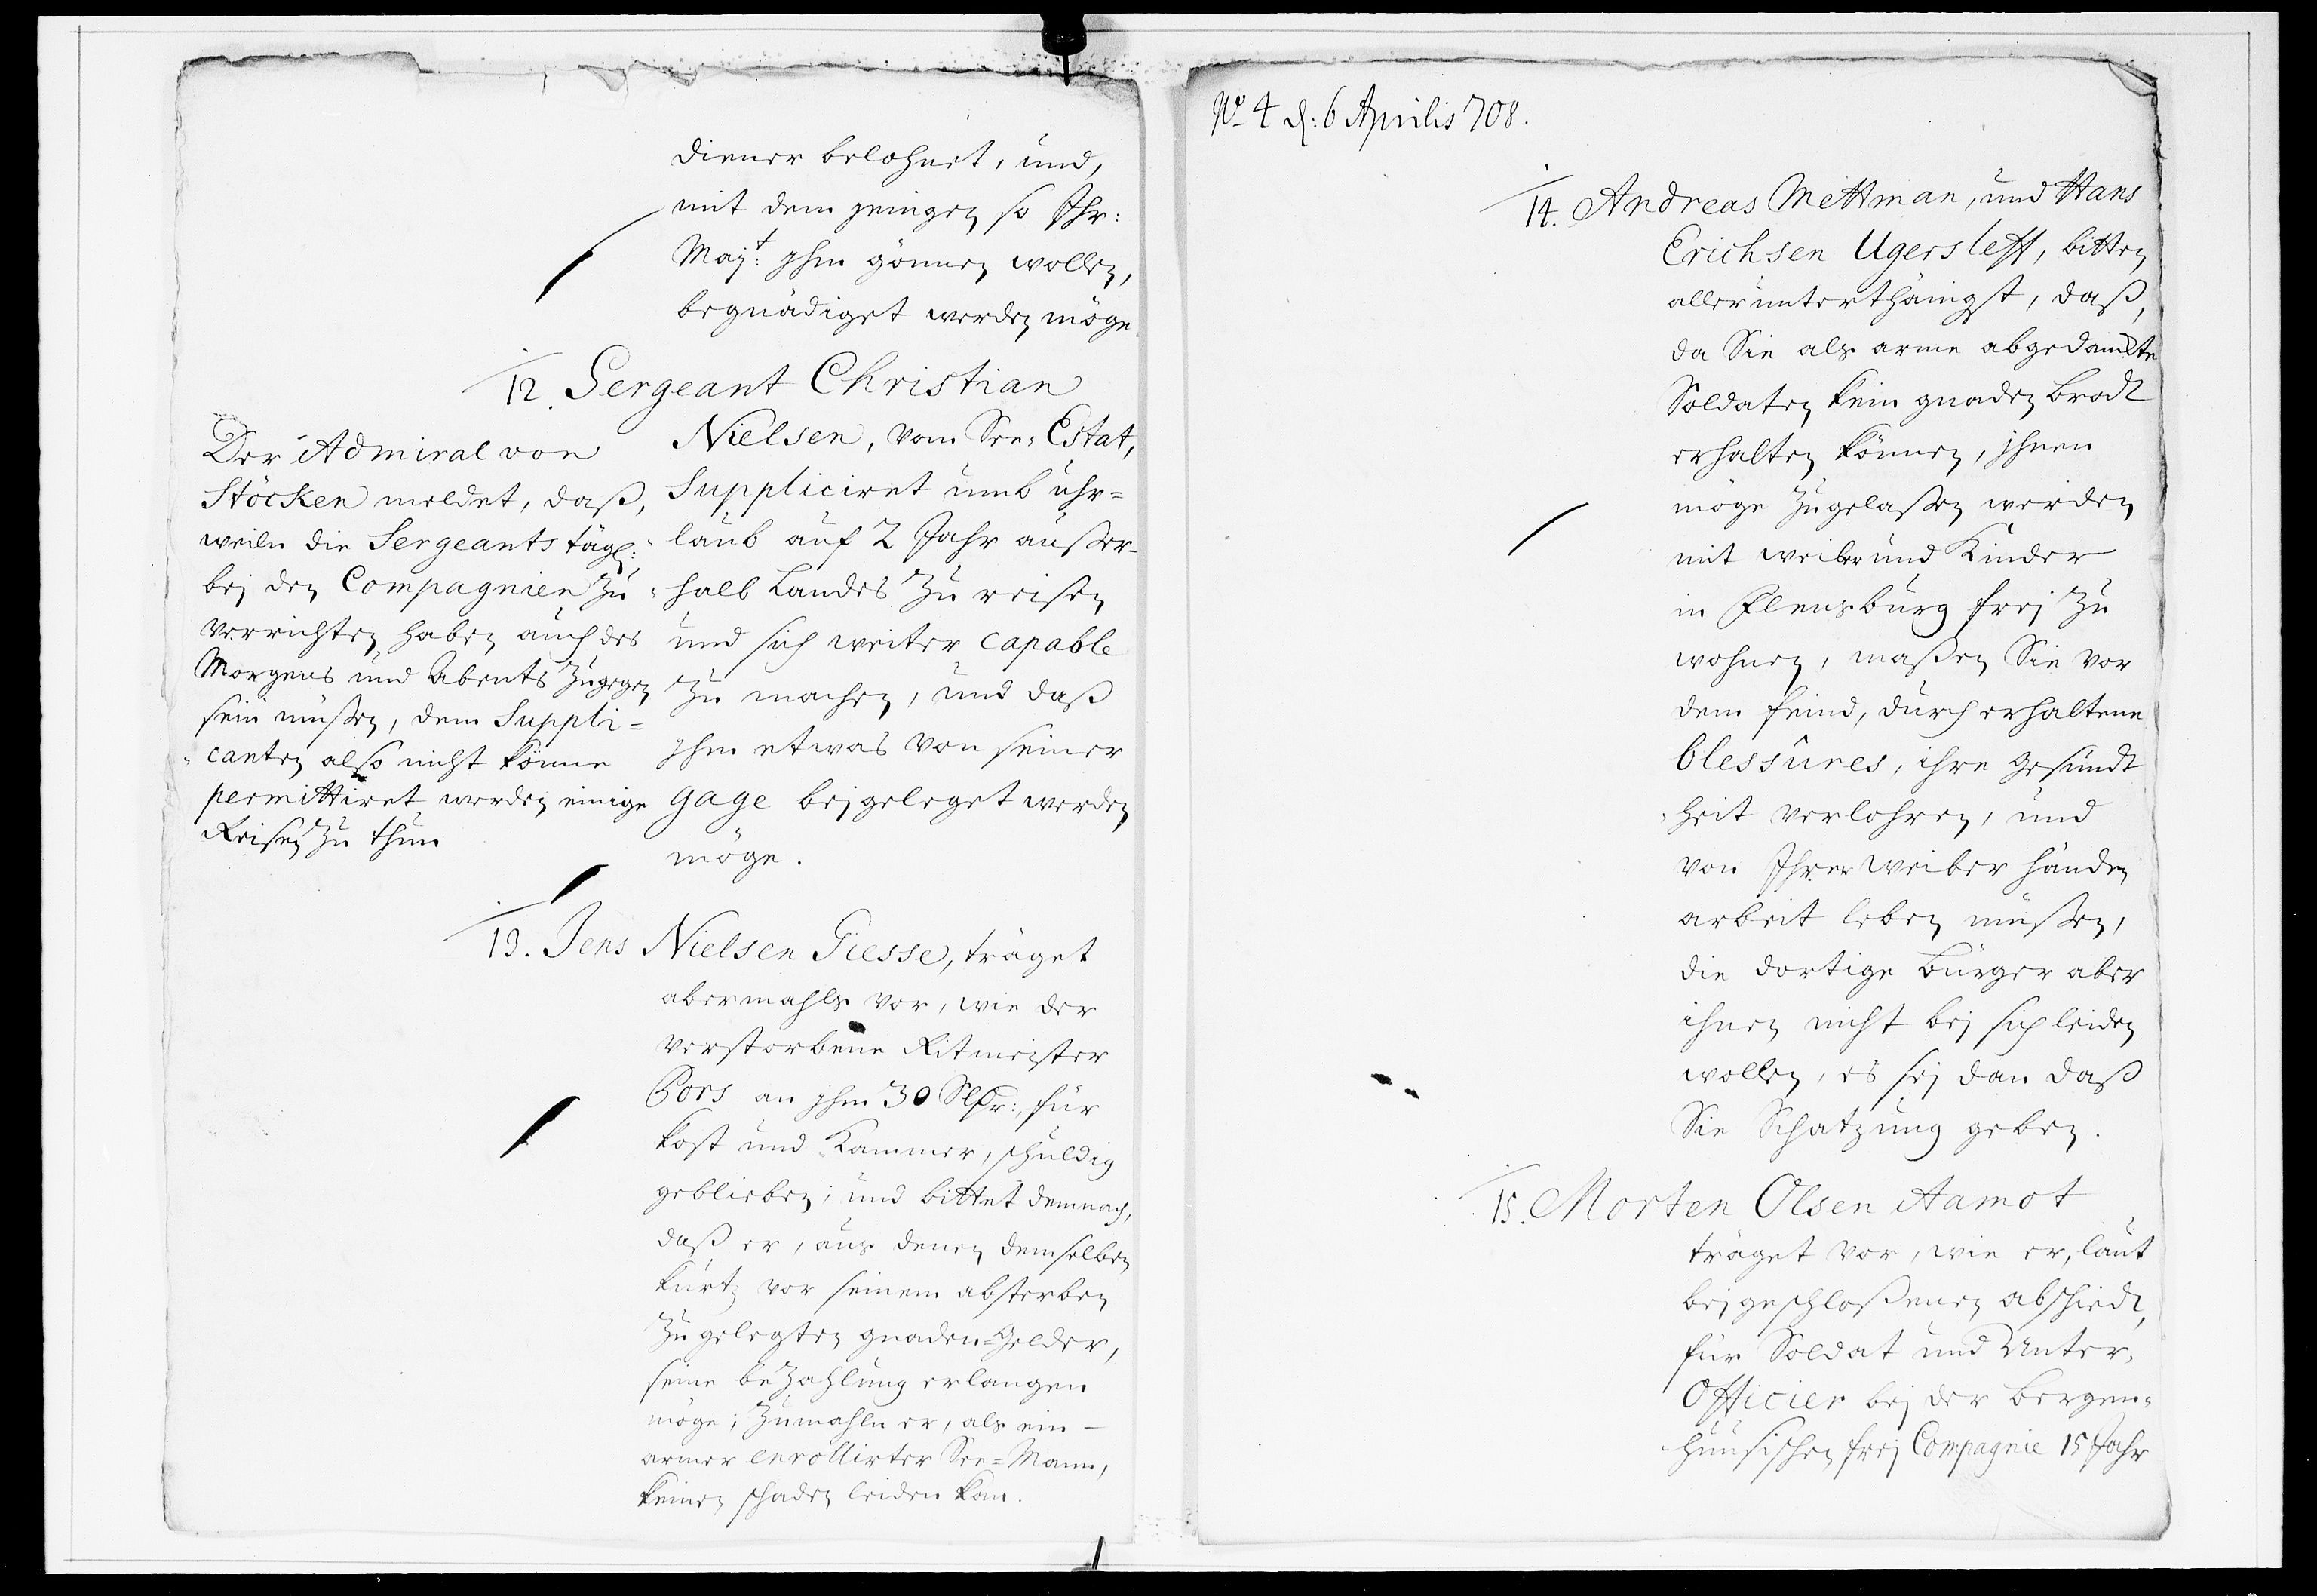 diener belohnet, und,
mit dem jenigen so Ihr:
Maj:t ihm gönnen wollen,
begnädiget werden möge.
12. Sergeant Christian
Nielsen, vom See-Estat,
suppliciret umb uhr=
laub auf 2 Jahr außer-
halb Landes zu reisen
und sich weiter capable
zu machen, und daß
ihm etwas von seiner
gage beygeleget werden
möge.
Der Admiral von
Stöcken meldet, daß,
weiln die Sergeants tägl:
bej den Compagnien zu
verrichten haben auch des
Morgens und Abents zugegen
sein müßen, dem Suppli=
canten also nicht könne
permittiret werden einige
Reisen zu thun
13. Jens Nielsen Giesse, träget
abermahls vor, wie der
verstorbene Ritmeister
Bors an ihm 30 Slr:, für
kost und Kammer, schuldig
geblieben; und bittet demnach,
daß er, aus denen demselben
kurtz vor seinem absterben
zu gelegten gnaden=Gelder,
seine bezahlung erlangen
möge; Zumahln er, als ein
armer enrollirter See=Mann,
keinen schaden leiden kan.
No 4 d: 6 Aprilis 708.
14. Andreas Mettman, und Hans
Erichsen Ugersleff, bitten
allerunterthänigst, daß,
da Sie als arme abgedanckte
Soldaten kein gnaden Brodt
erhalten können, ihnen
möge zugelaßen werden
mit weiber und Kinder
in Flensburg frej zu
wohnen, maßen Sie vor
dem feind, durch erhaltene
blessûres, ihre gesundt
heit verlohren, und
von Ihrer weiber händen
arbeit leben müßen,
die dortige Bürger aber
ihnen nicht bej sich leiden
wollen, es sej dan daß
Sie Schatzung geben.
15. Morten Olsen Aamot
träget vor, wie er, laut
bejgeschloßenen abschiedt,
für Soldat und Unter-
Officier bej der Bergen-
husischen frej Compagnie 15 Jahr